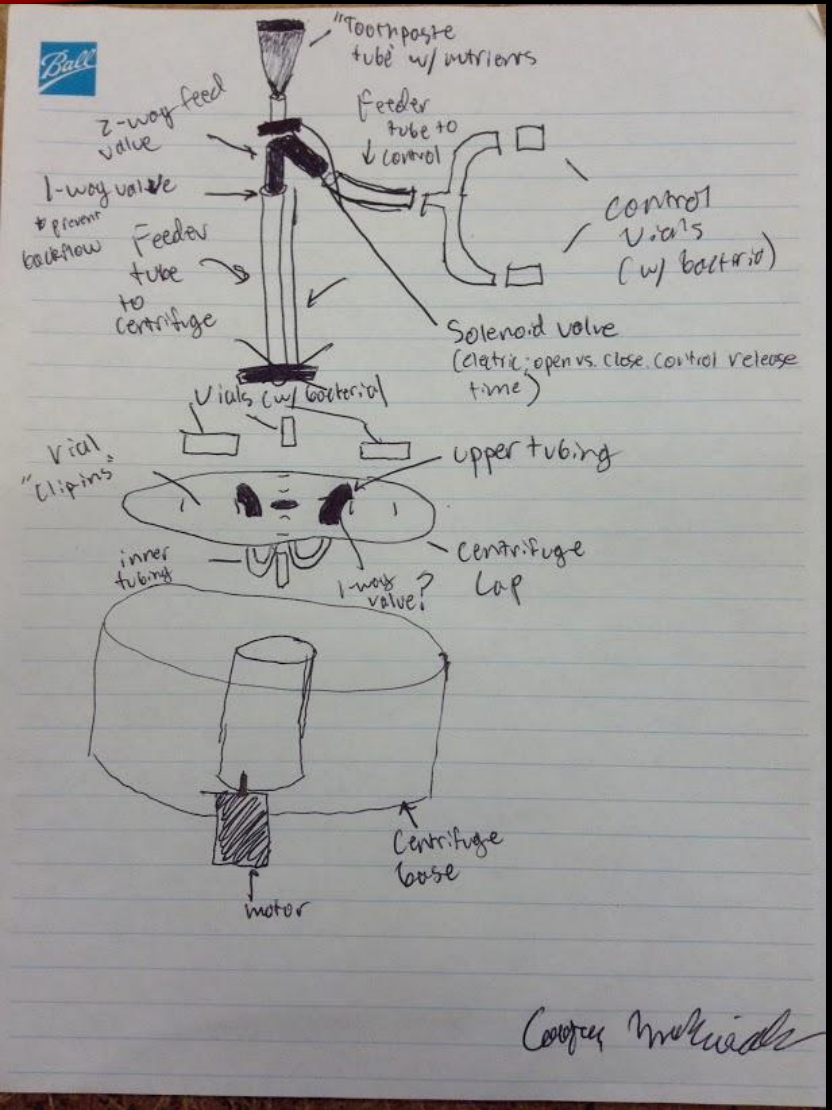 Ball
"Toothpaste
tube w/ nutrients
2-way feed
valve
Feeder
tube to
control
1-way valve
to prevent
backflow
Feeder
tube
to
centrifuge
control
vials
(w/ bacteria)
Solenoid valve
(electric; open vs. close. control release
time)
Vials (w/ bacteria)
Vial
"Clip ins"
upper tubing
inner
tubing
1-way
valve?
Centrifuge
Cap
Centrifuge
base
motor